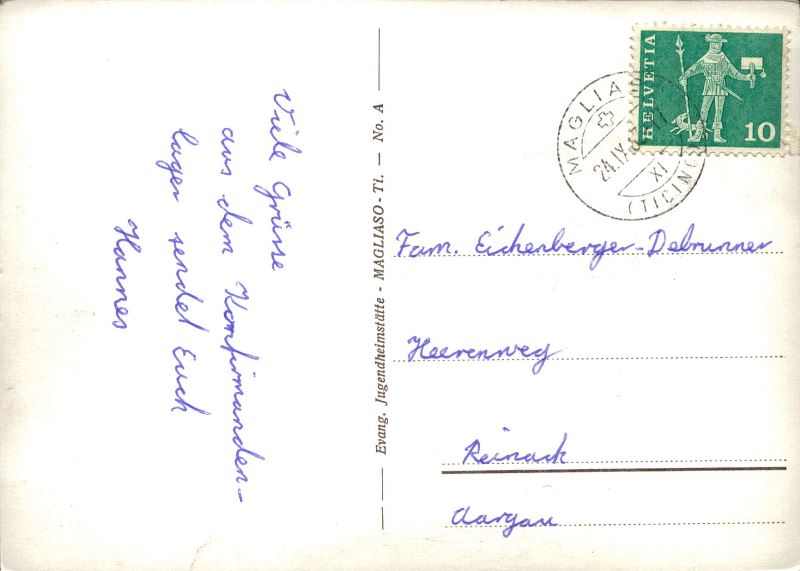 Viele Grüsse
aus dem Konfirmanden-
lager sendet Euch
Hannes
Evang. Jugendheimstätte - MAGLIASO - Ti. — No. A
HELVETIA
10
MAGLIASO
24.IX
XI
(TICINO)
Fam. Eichenberger-Debrunner
Heerenweg
Reinach
Aargau